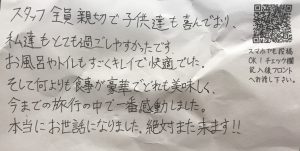 スタッフ全員親切で子供達も喜んでおり、
私達もとても過ごしやすかったです。
お風呂やトイレもすごくキレイで快適でした。
そして何よりも食事が豪華でどれも美味しく、
今までの旅行の中で一番感動しました。
本当にお世話になりました。絶対また来ます!!
スマホでも投稿
OK!チェック欄
記入後フロント
へお渡し下さい。